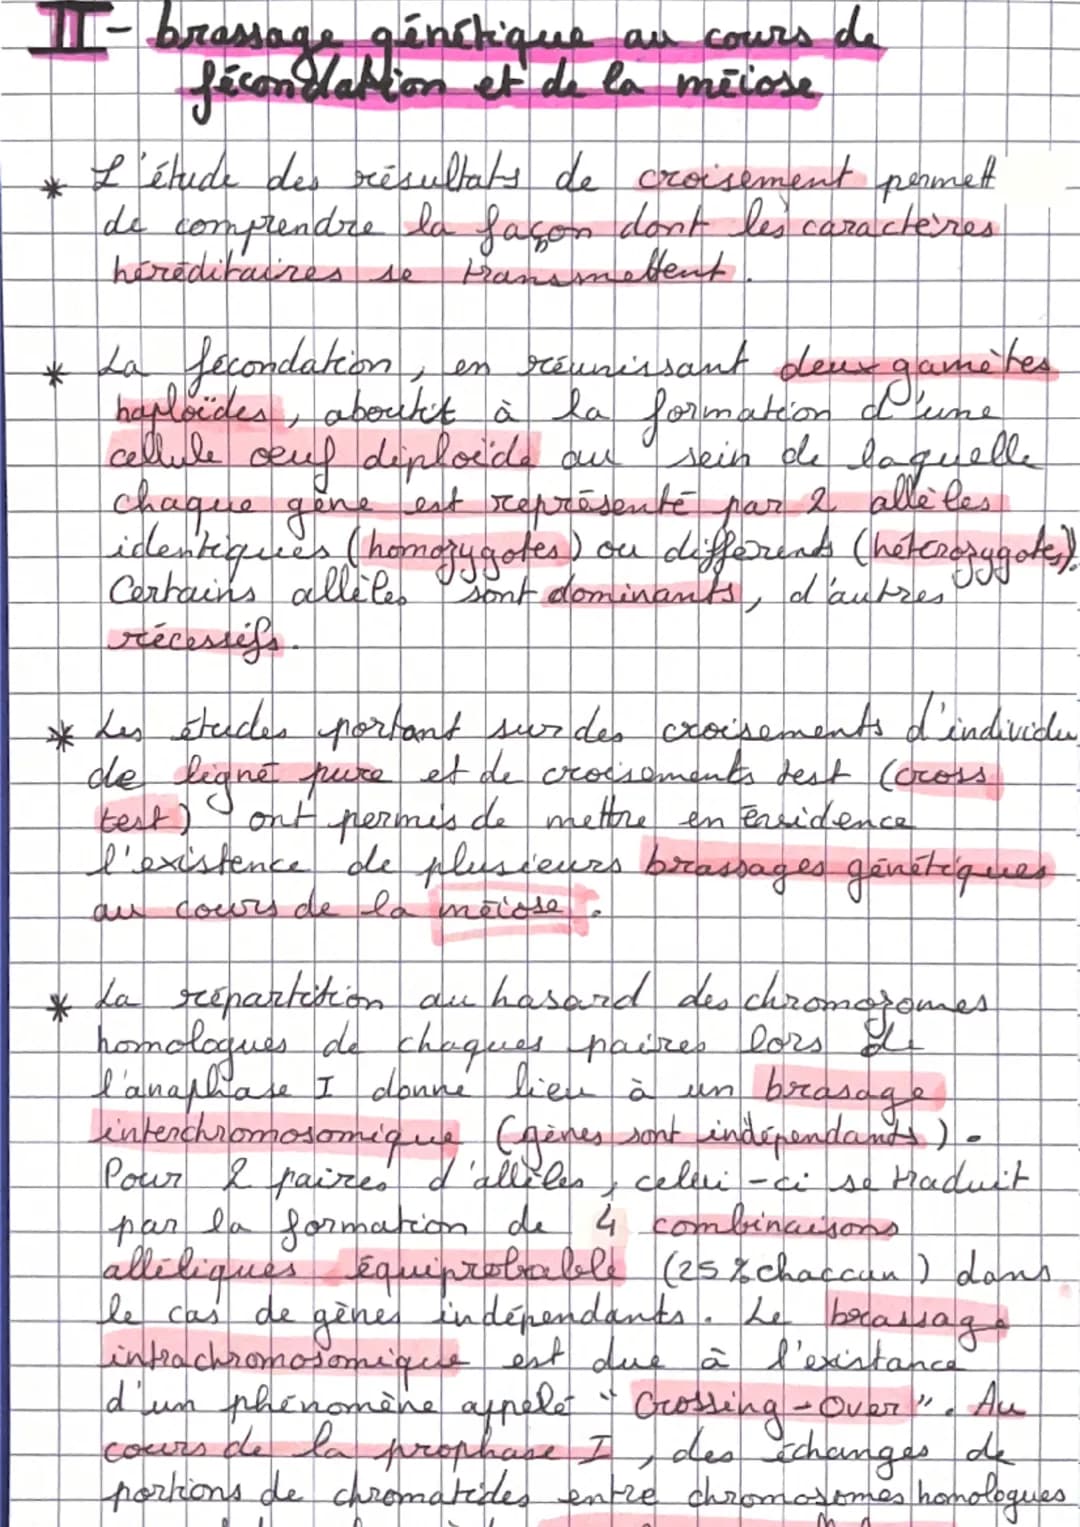 II - brassage génétique au cours de
fécondation et de la méiose
* L'étude des résultats de croisement permett
de comprendre la façon dont les caractères
héréditaires se transmettent.
* La fécondation, en réunissant deux gamètes
haploïdes, aboutit à la formation d'une
cellule oeuf diploïde au sein de laquelle
chaque gène est représenté par 2 allèles
identiques (homozygotes) ou différends (hétérozygotes).
Certains allèles sont dominants, d'autres
récessifs.
* Les études portant sur des croisements d'individu
de ligné pure et de croisements test (cross
test) ont permis de mettre en évidence
l'existence de plusieurs brassages génétiques
au cours de la méiose.
* La répartition au hasard des chromozomes
homologues de chaques paires lors de
l'anaphase I donne lieu à un brasage
interchromosomique (gènes sont indépendants).
Pour 2 paires d'allèles, celui-ci se traduit
par la formation de 4 combinaisons
alléliques équiprobable (25% chaccun) dans
le cas de gènes indépendants. Le brassage
intrachromosomique est due à l'existance
d'un phénomène appelé "Crossing-Over". Au
cours de la prophase I, des échanges de
portions de chromatides entre chromosomes homologues